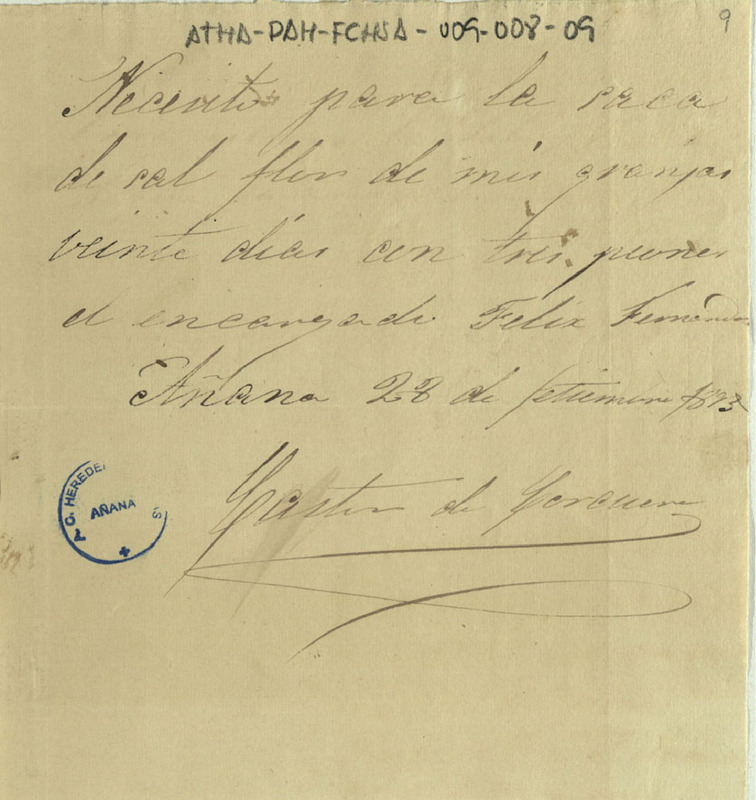 9
ATHA-PAH-FCHSA-009-008-09
Necesito para la saca
de sal flor de mis granjas
veinte días con tres peones
el encargado Felix Fernández
Añana 28 de setiembre 1893
Caston de Corcuera
HEREDE
AÑANA